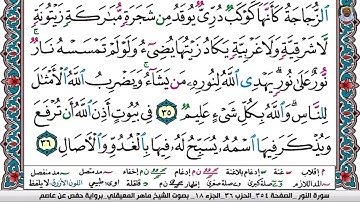 ٱلزُّجَاجَةُ كَأَنَّهَا كَوْكَبٌ دُرِّيٌّ يُوقَدُ مِن شَجَرَةٍ مُّبَٰرَكَةٍ زَيْتُونَةٍ
لَّا شَرْقِيَّةٍ وَلَا غَرْبِيَّةٍ يَكَادُ زَيْتُهَا يُضِىٓءُ وَلَوْ لَمْ تَمْسَسْهُ نَارٌ ۚ
نُّورٌ عَلَىٰ نُورٍ ۗ يَهْدِى ٱللَّهُ لِنُورِهِۦ مَن يَشَآءُ ۚ وَيَضْرِبُ ٱللَّهُ ٱلْأَمْثَٰلَ
لِلنَّاسِ ۗ وَٱللَّهُ بِكُلِّ شَىْءٍ عَلِيمٌ ٣٥ فِى بُيُوتٍ أَذِنَ ٱللَّهُ أَن تُرْفَعَ
وَيُذْكَرَ فِيهَا ٱسْمُهُۥ يُسَبِّحُ لَهُۥ فِيهَا بِٱلْغُدُوِّ وَٱلْءَاصَالِ ٣٦
سورة النور _ الصفحة ٣٥٤ _ الحزب ٣٦ _ الجزء ١٨ _ بصوت الشيخ ماهر المعيقلي _ برواية حفص عن عاصم